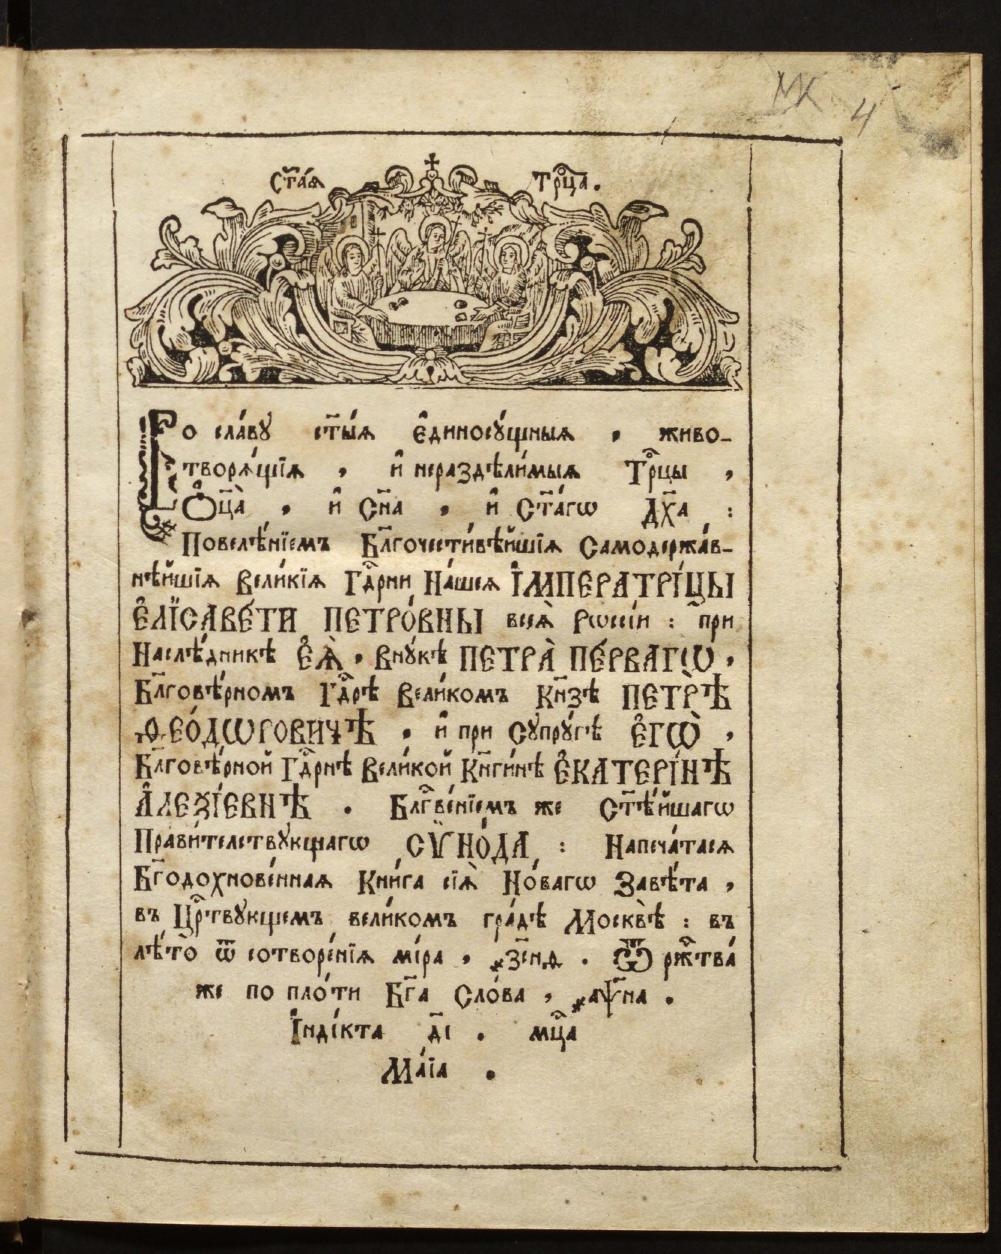 МК 4
Ст҃а́ѧ Трⷪ҇ца.
Во сла́вꙋ ст҃ы́ѧ є҆диносꙋ́щныѧ , живо-
творѧ́щїѧ , и҆ нераздѣли́мыѧ Трⷪ҇цы ,
Ѻ҆ц҃а̀ , и҆ Сн҃а , и҆ Ст҃а́гѡ Дх҃а :
Повелѣ́нїемъ Бл҃гочести́вѣйшїѧ Самодержа́в-
нѣйшїѧ Вели́кїѧ Гдⷭ҇рни На́шеѧ І҆МПЕРАТРІ́ЦЫ
Є҆ЛІСАВЕ́ТИ ПЕТРО́ВНЫ всеѧ̀ Рѡссі́и : при
Наслѣ́дникѣ Є҆Ѧ̀ , Внꙋ́кѣ ПЕТРА̀ ПЕ́РВАГѠ ,
Бл҃говѣ́рномъ Гдⷭ҇рѣ Вели́комъ Кн҃зѣ ПЕТРѢ̀
Ѳ҆ЕО́ДѠРОВИЧѢ , и҆ при Сꙋпрꙋ́гѣ Є҆ГѠ̀ ,
Бл҃говѣ́рной Гдⷭ҇рнѣ Вели́кой Кн҃ги́нѣ Є҆КАТЕРІ́НѢ
А҆ЛЕѮІ́ЕВНѢ . Блгⷭ҇ве́нїемъ же Ст҃ѣ́йшагѡ
Прави́телствꙋющагѡ СѴНО́ДА : Напеча́тасѧ
Бг҃одохнове́ннаѧ Кни́га сїѧ̀ Но́вагѡ Завѣ́та ,
въ Црⷭ҇твꙋющемъ вели́комъ гра́дѣ Москвѣ̀ : въ
лѣ́то ѿ сотворе́нїѧ мі́ра , ҂зс҃нѳ . Ѿ ржⷭ҇тва́
же по пло́ти Бг҃а Сло́ва , ҂аѱ҃на .
І҆ндікта д҃і . мцⷭ҇а
Ма́їа .